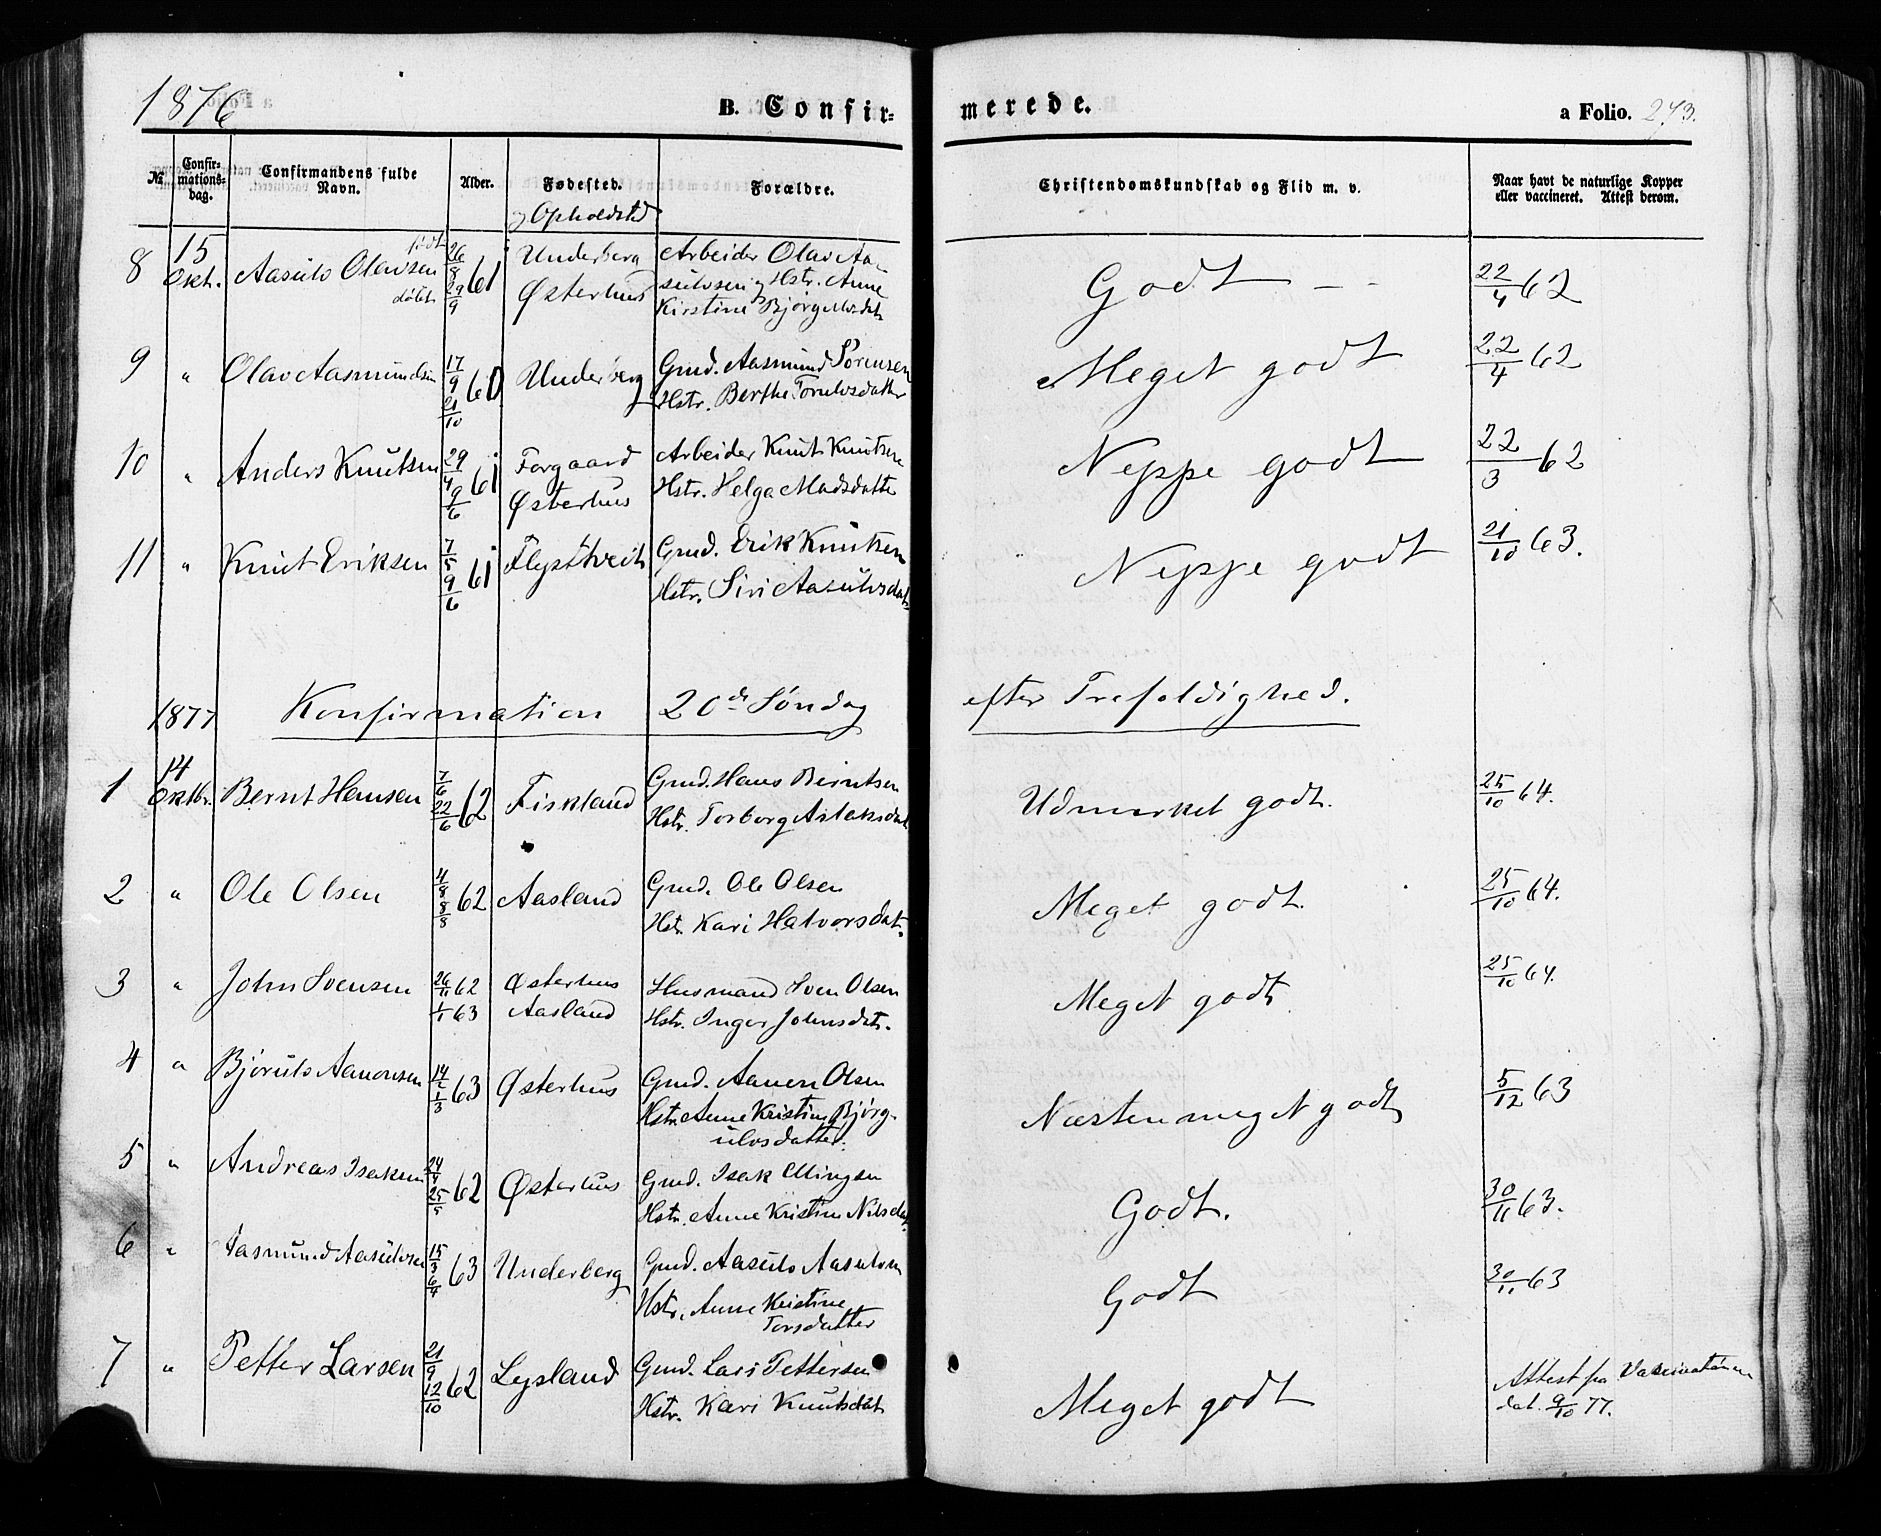 1876
B. Confir-
merede.
a Folio. 273.
No
Confir-
mations-
dag.
Confirmandens fulde
Navn.
Alder.
Fødested.
og Opholdsted
Forældre.
Christendomskundskab og Flid m. v.
Naar havt de naturlige Kopper
eller vaccineret. Attest derom.
8 15 Okt. Aasulv Olavsen født 26/8 døbt 29/9 61 Underberg Østerhus
Arbeider Olav Aa-
sulvsen og Hstr. Anne
Kirstine Bjørgulvsdat
Godt - - 22/4 62
9 " Olav Aasmundsen 17/9 21/10 60 Underberg
Gmd. Aasmund Sørensen
Hstr. Berthe Torulvsdatter
Meget godt 22/4 62
10 " Anders Knutsen 29/4 9/6 61 Forgaard Østerhus
Arbeider Knut Knutsen
Hstr. Helga Madsdatter
Neppe godt 22/3 62
11 " Knut Eriksen 7/5 9/6 61 Fløistveit
Gmd. Erik Knutsen
Hstr. Siri Aasulvsdat.
Neppe godt 21/10 63.
1877 Konfirmation 20de Søndag efter Trefoldighed.
1 14 Oktbr. Bernt Hansen 7/6 22/6 62 Fiskland
Gmd. Hans Berntsen
Hstr. Torborg Aslaksdat
Udmerket godt. 25/10 64.
2 " Ole Olsen 4/8 8/8 62 Aasland
Gmd. Ole Olsen
Hstr Kari Halvorsdat.
Meget godt. 25/10 64.
3 " John Svensen 26/11 62 1/1 63 Østerhus Aasland
Husmand Sven Olsen
Hstr. Inger Johnsdtr.
Meget godt 25/10 64.
4 " Bjørulv Aanonsen 14/1 1/3 63 Østerhus
Gmd. Aanen Olsen
Hstr. Anne Kristine Bjørg-
ulvsdatter.
Næsten meget godt 5/12 63
5 " Andreas Isaksen 24/4 25/5 62 Østerhus
Gmd. Isak Ellingsen
Hstr. Anne Kristine Nilsdat.
Godt. 30/11 63.
6 " Aasmund Aasulvsen 15/3 6/4 63 Underberg
Gmd. Aasulv Aasulvsen
Hstr. Anne Kristine
Torsdatter
Godt 30/11 63
7 " Petter Larsen 21/9 12/10 62 Lysland
Gmd. Lars Pettersen
Hstr. Kari Knutsdat
Meget godt
Attest fra Vaksinatøren
dat. 9/10 77.